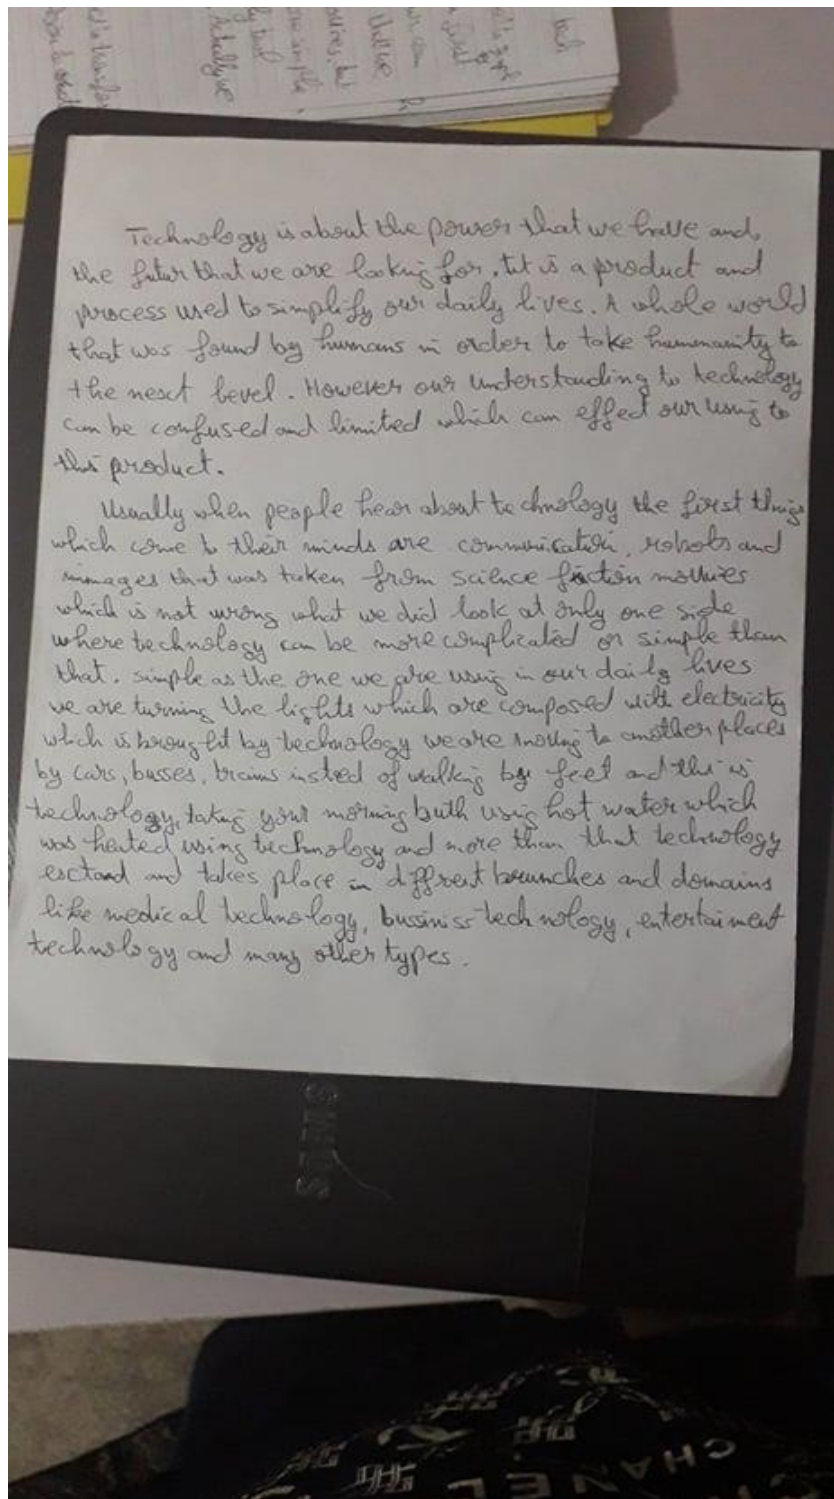 Technology is about the power that we have and
the futur that we are looking for. tit is a product and
process used to simplify our daily lives. A whole world
that was found by humans in order to take humenanity to
the next level. However our understanding to technology
can be confused and limited which can effect our using to
this product.
Usually when people hear about technology the first things
which come to their minds are communication, robots and
immages that was taken from science fiction movies
which is not wrong what we did look at only one side
where technology can be more complicated or simple than
that. simple as the one we are using in our daily lives
we are turning the lights which are composed with electricity
which is brought by technology we are moving to another places
by cars, busses, trains insted of walking by feet and this is
technology, taking your morning buth using hot water which
was heited using technology and more than that technology
exctand and takes place in diffrent brunches and domains
like medical technology, bussiniss technology, entertaiment
technology and many other types.
CHANEL